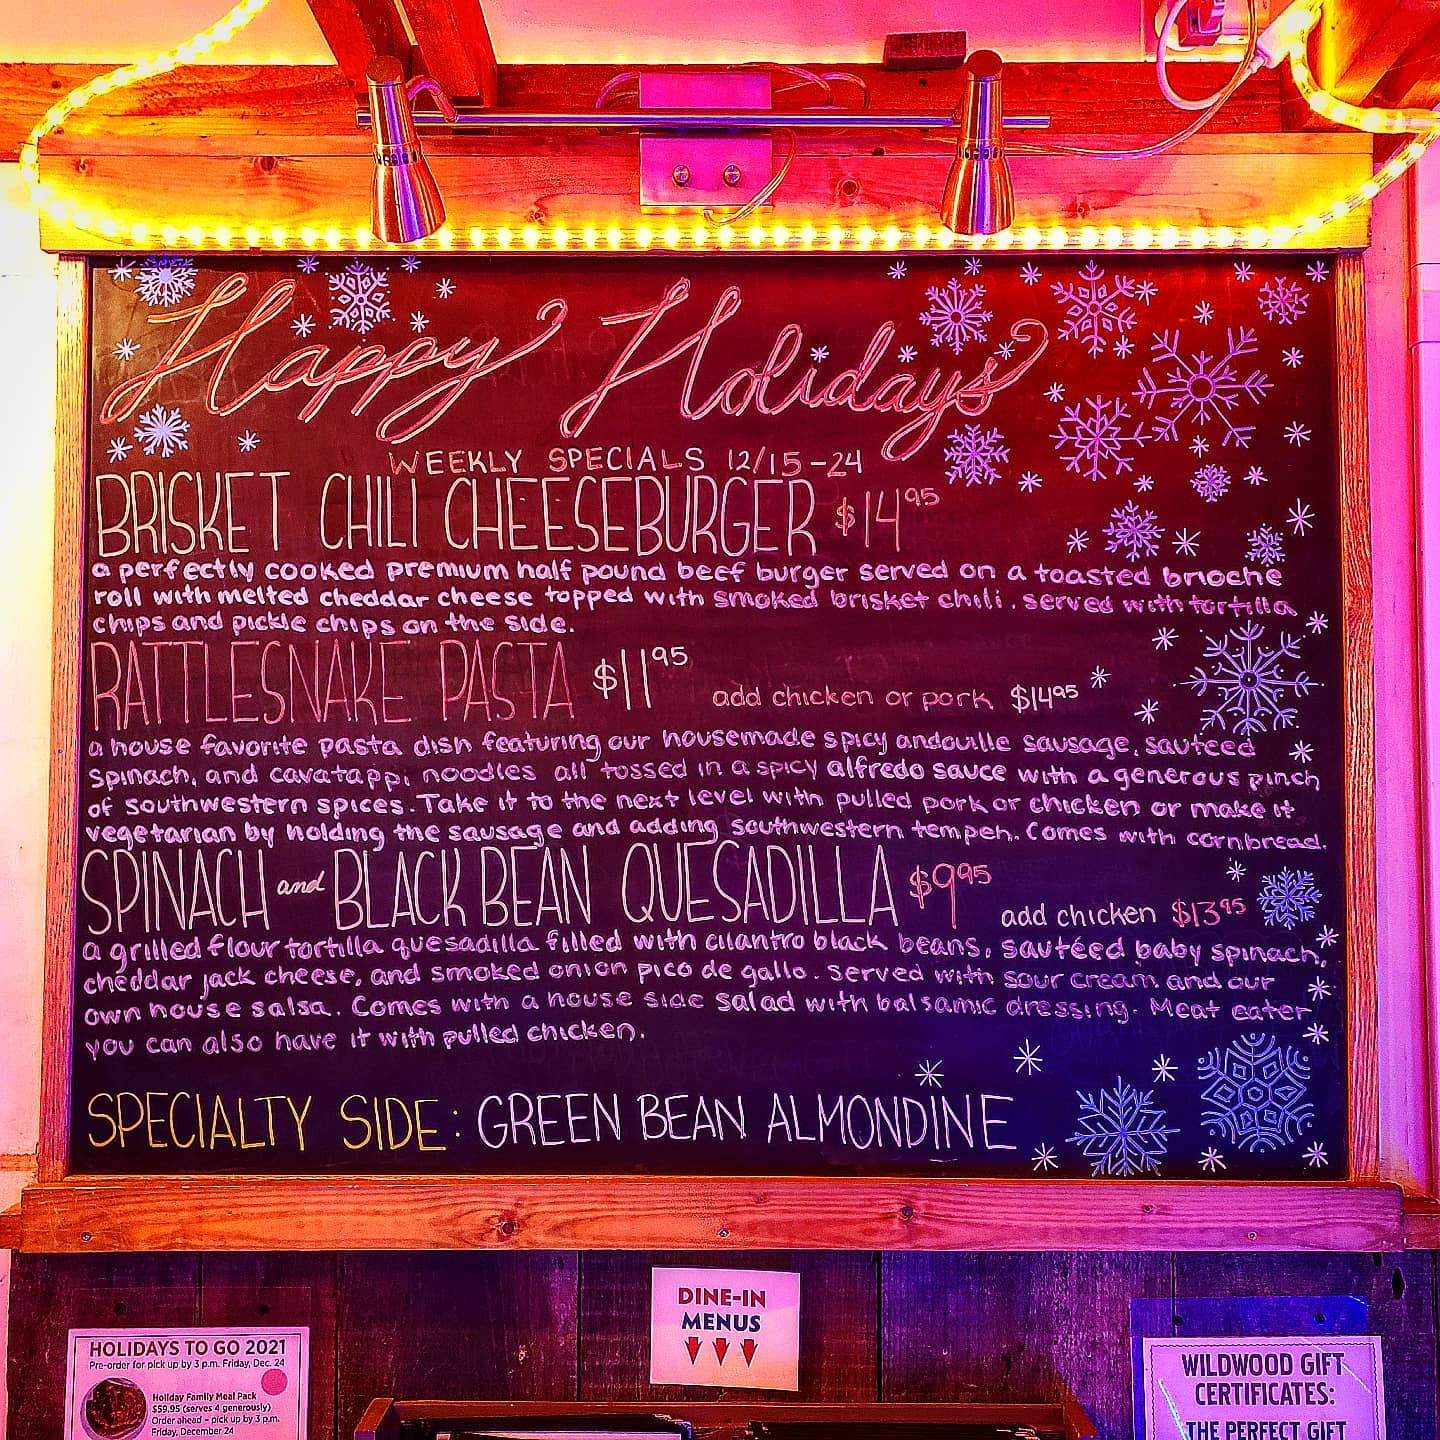 Happy Holidays
WEEKLY SPECIALS 12/15-24
BRISKET CHILI CHEESEBURGER $14.95
a perfectly cooked premium half pound beef burger served on a toasted brioche
roll with melted cheddar cheese topped with smoked brisket chili. served with tortilla
chips and pickle chips on the side.
RATTLESNAKE PASTA $11.95 add chicken or pork $14.95
a house favorite pasta dish featuring our housemade spicy andouille sausage, sautéed
spinach, and cavatappi noodles all tossed in a spicy alfredo sauce with a generous pinch
of southwestern spices. Take it to the next level with pulled pork or chicken or make it
vegetarian by holding the sausage and adding southwestern tempeh. Comes with cornbread.
SPINACH and BLACK BEAN QUESADILLA $9.95 add chicken $13.95
a grilled flour tortilla quesadilla filled with cilantro black beans, sautéed baby spinach,
cheddar jack cheese, and smoked onion pico de gallo. served with sour cream and our
own house salsa. Comes with a house side salad with balsamic dressing. Meat eater
you can also have it with pulled chicken.
SPECIALTY SIDE: GREEN BEAN ALMONDINE
DINE-IN
MENUS
HOLIDAYS TO GO 2021
Pre-order for pick up by 3 p.m. Friday, Dec. 24
Holiday Family Meal Pack
$59.95 (serves 4 generously)
Order ahead – pick up by 3 p.m.
Friday, December 24
WILDWOOD GIFT
CERTIFICATES:
THE PERFECT GIFT